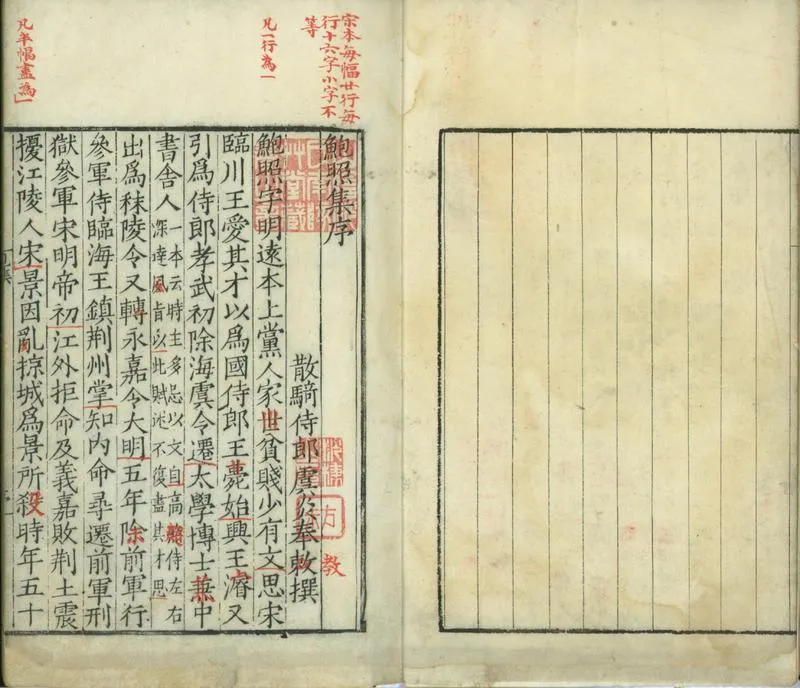 宋本每幅廿行每
行十六字小字不
等
凡一行為一
凡半幅盡為一」
鮑照集序
散騎侍郎虞炎奉敕撰
教
鮑照字明遠本上黨人家世貧賤少有文思宋
臨川王愛其才以爲國侍郎王薨始興王濬又
引爲侍郎孝武初除海虞令遷太學博士兼中
書舍人
一本云時主多忌以文自高趨侍左右
深達風旨以此賦述不復盡其才思
出爲秣陵令又轉永嘉令大明五年除前軍行
參軍侍臨海王鎮荆州掌知內命尋遷前軍刑
獄參軍宋明帝初江外拒命及義嘉敗荆土震
擾江陵人宋景因亂掠城爲景所殺時年五十